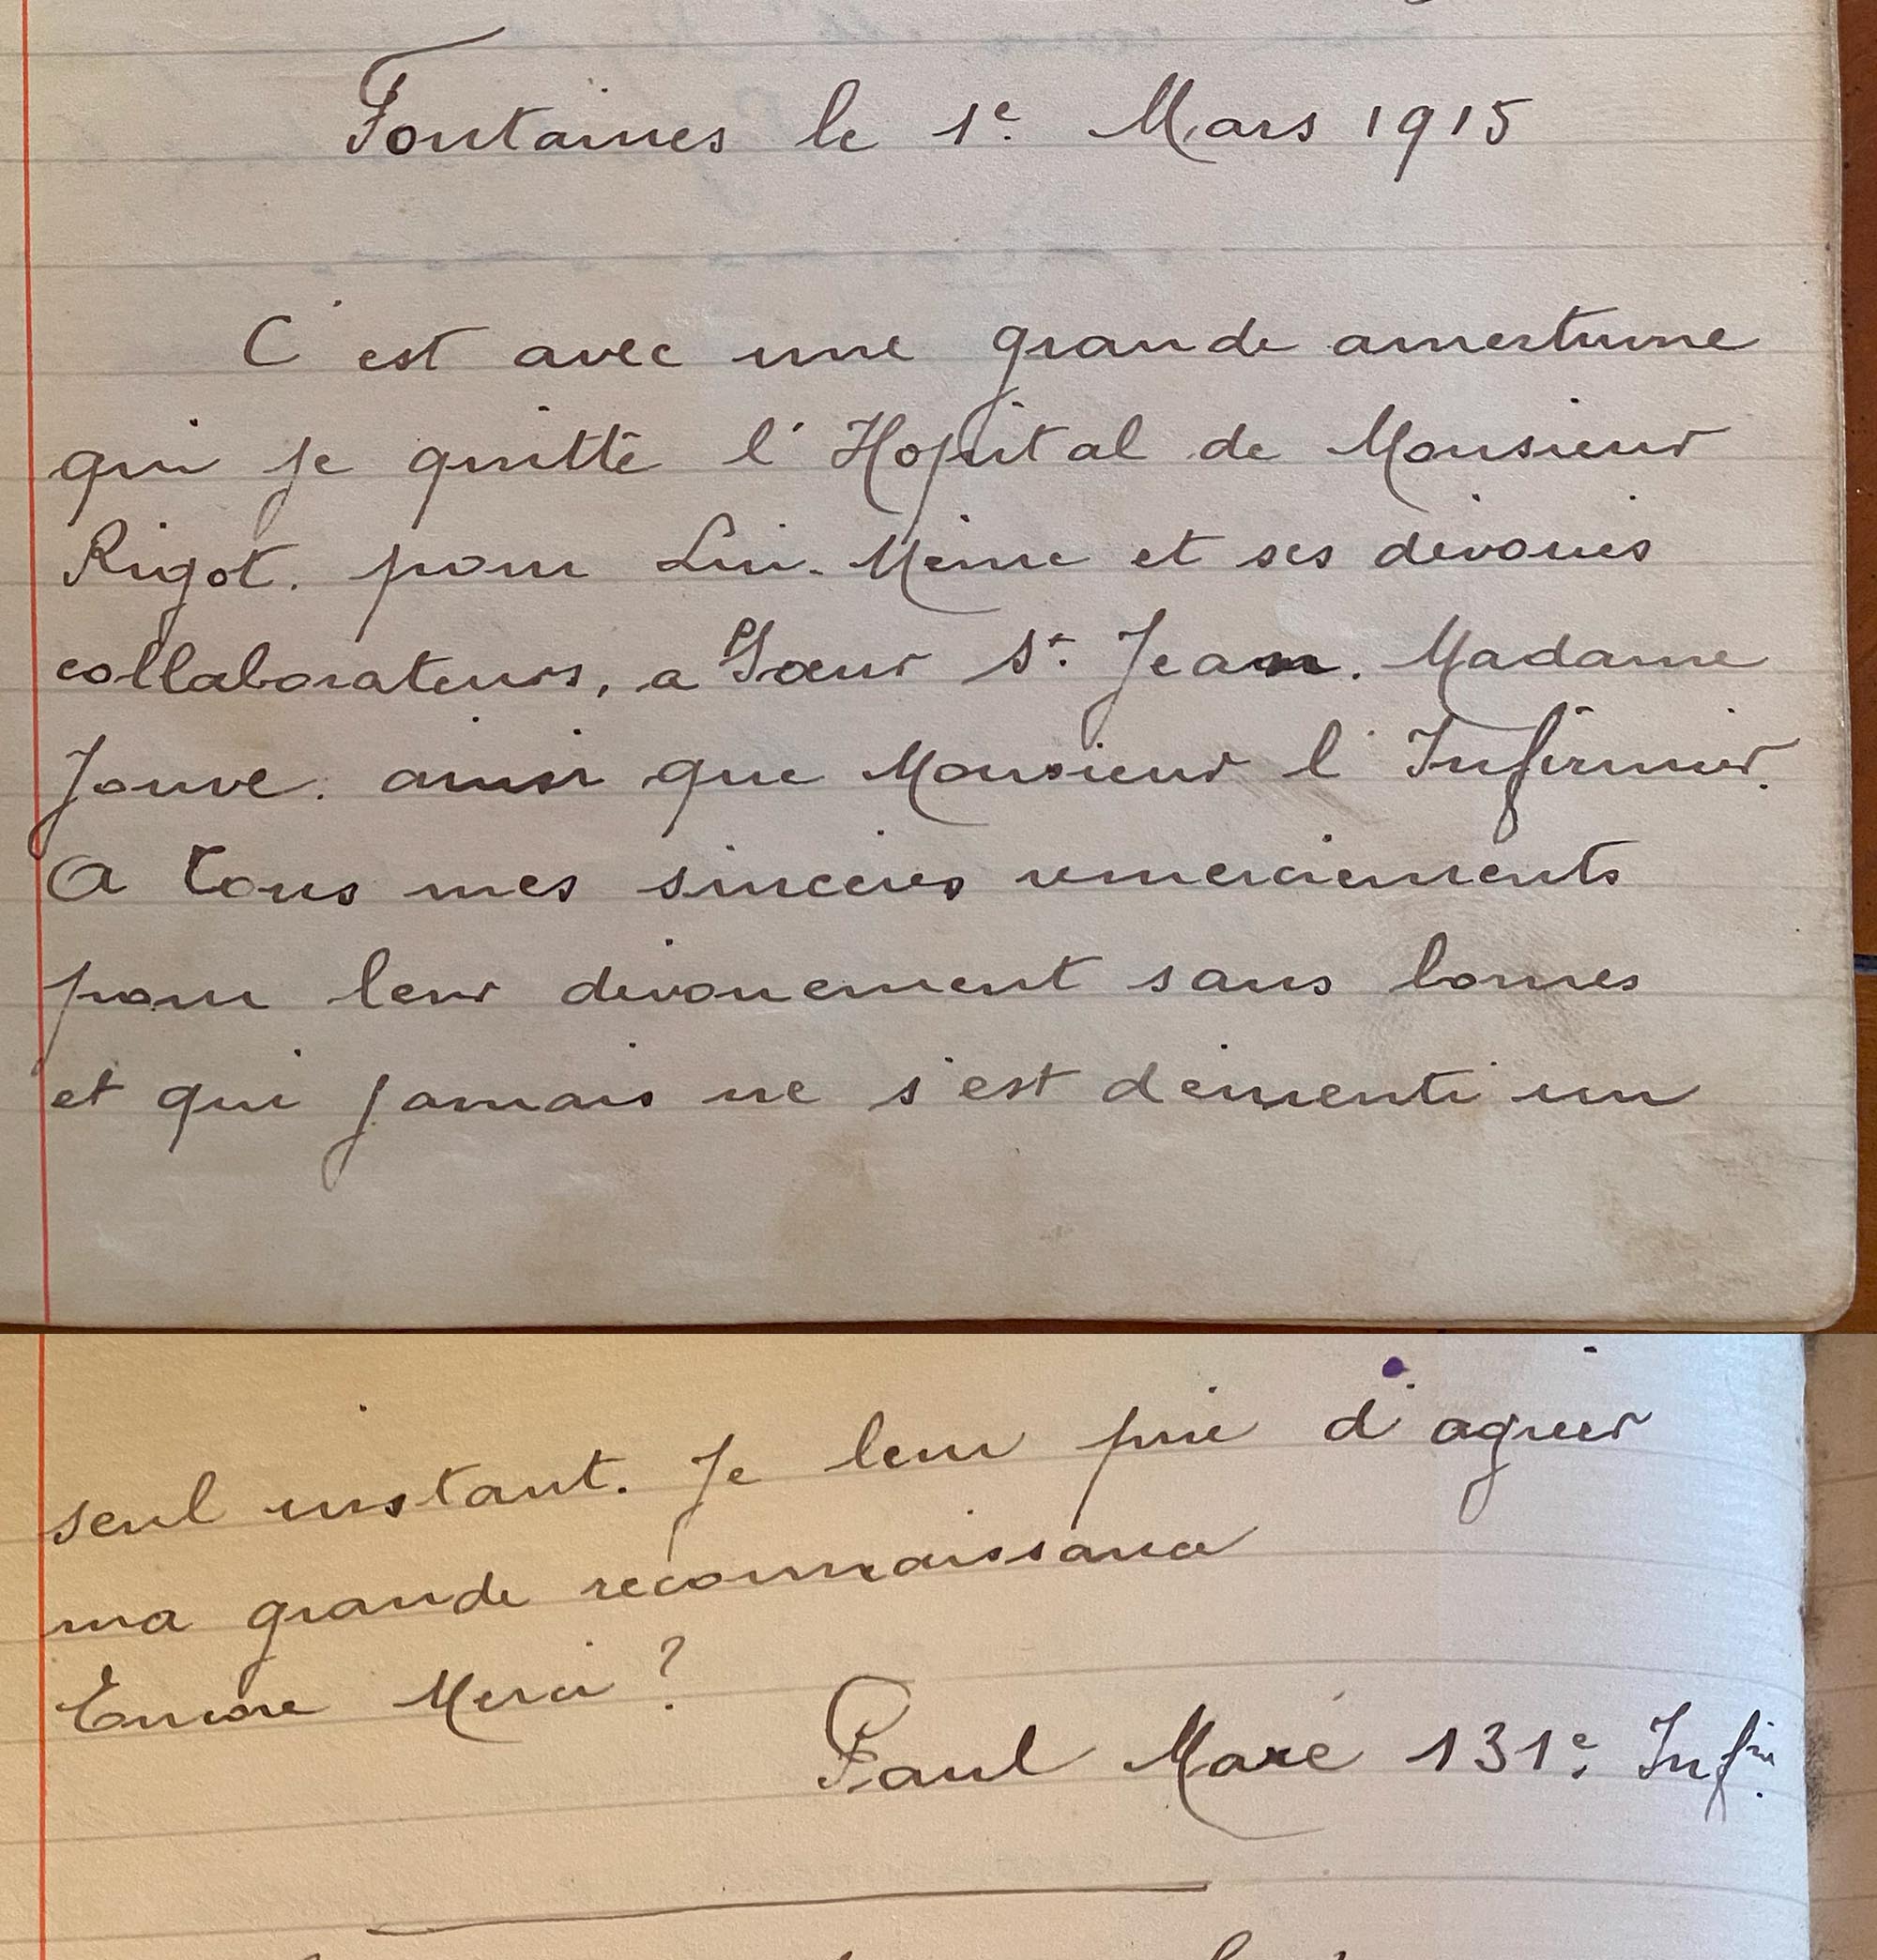 Fontaines le 1e Mars 1915
C'est avec une grande amertume
qui je quitte l'Hopital de Monsieur
Rigot. pour Lui-Même et ses dévoués
collaborateurs, a Sœur St Jean. Madame
Jouve. ainsi que Monsieur l'Infirmier.
A tous mes sincères remerciements
pour leur dévouement sans bornes
et qui jamais ne s'est démenti un
seul instant. Je leur prie d'agréer
ma grande reconnaissance
Encore Merci ?
Paul Maré 131e Infie